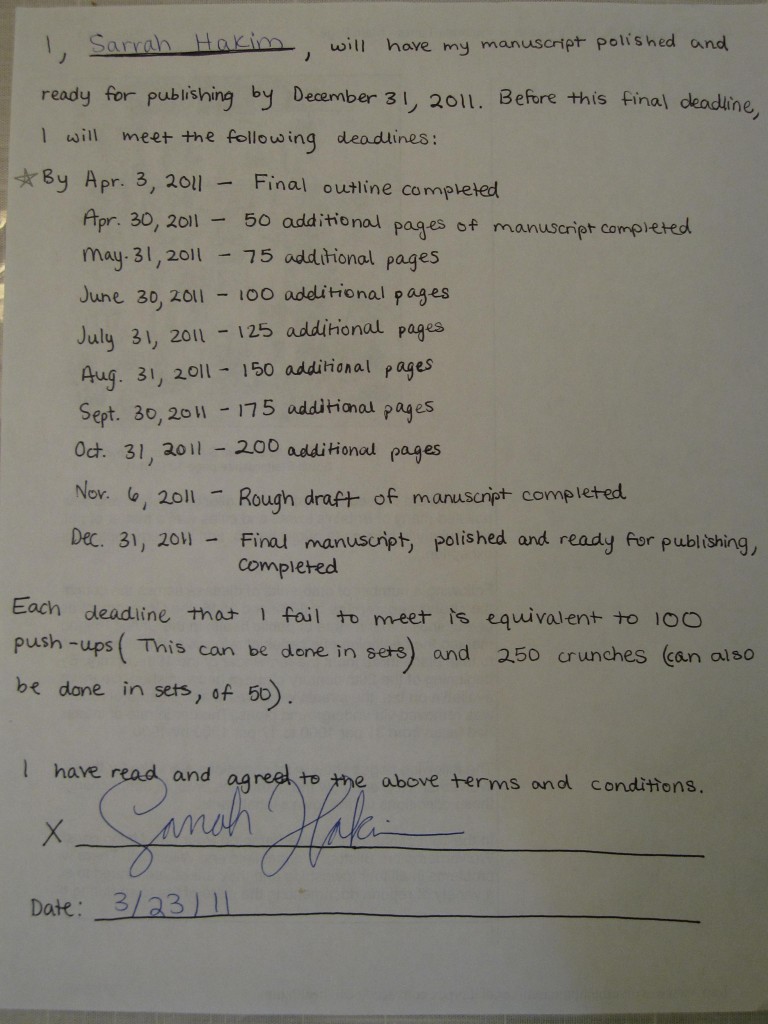 I, Sarrah Hakim, will have my manuscript polished and
ready for publishing by December 31, 2011. Before this final deadline,
I will meet the following deadlines:
☆By Apr. 3, 2011 - Final outline completed
Apr. 30, 2011 - 50 additional pages of manuscript completed
May. 31, 2011 - 75 additional pages
June 30, 2011 - 100 additional pages
July 31, 2011 - 125 additional pages
Aug. 31, 2011 - 150 additional pages
Sept. 30, 2011 - 175 additional pages
Oct. 31, 2011 - 200 additional pages
Nov. 6, 2011 - Rough draft of manuscript completed
Dec. 31, 2011 - Final manuscript, polished and ready for publishing,
completed
Each deadline that I fail to meet is equivalent to 100
push-ups (This can be done in sets) and 250 crunches (can also
be done in sets, of 50).
I have read and agreed to the above terms and conditions.
X Sarrah Hakim
Date: 3/23/11